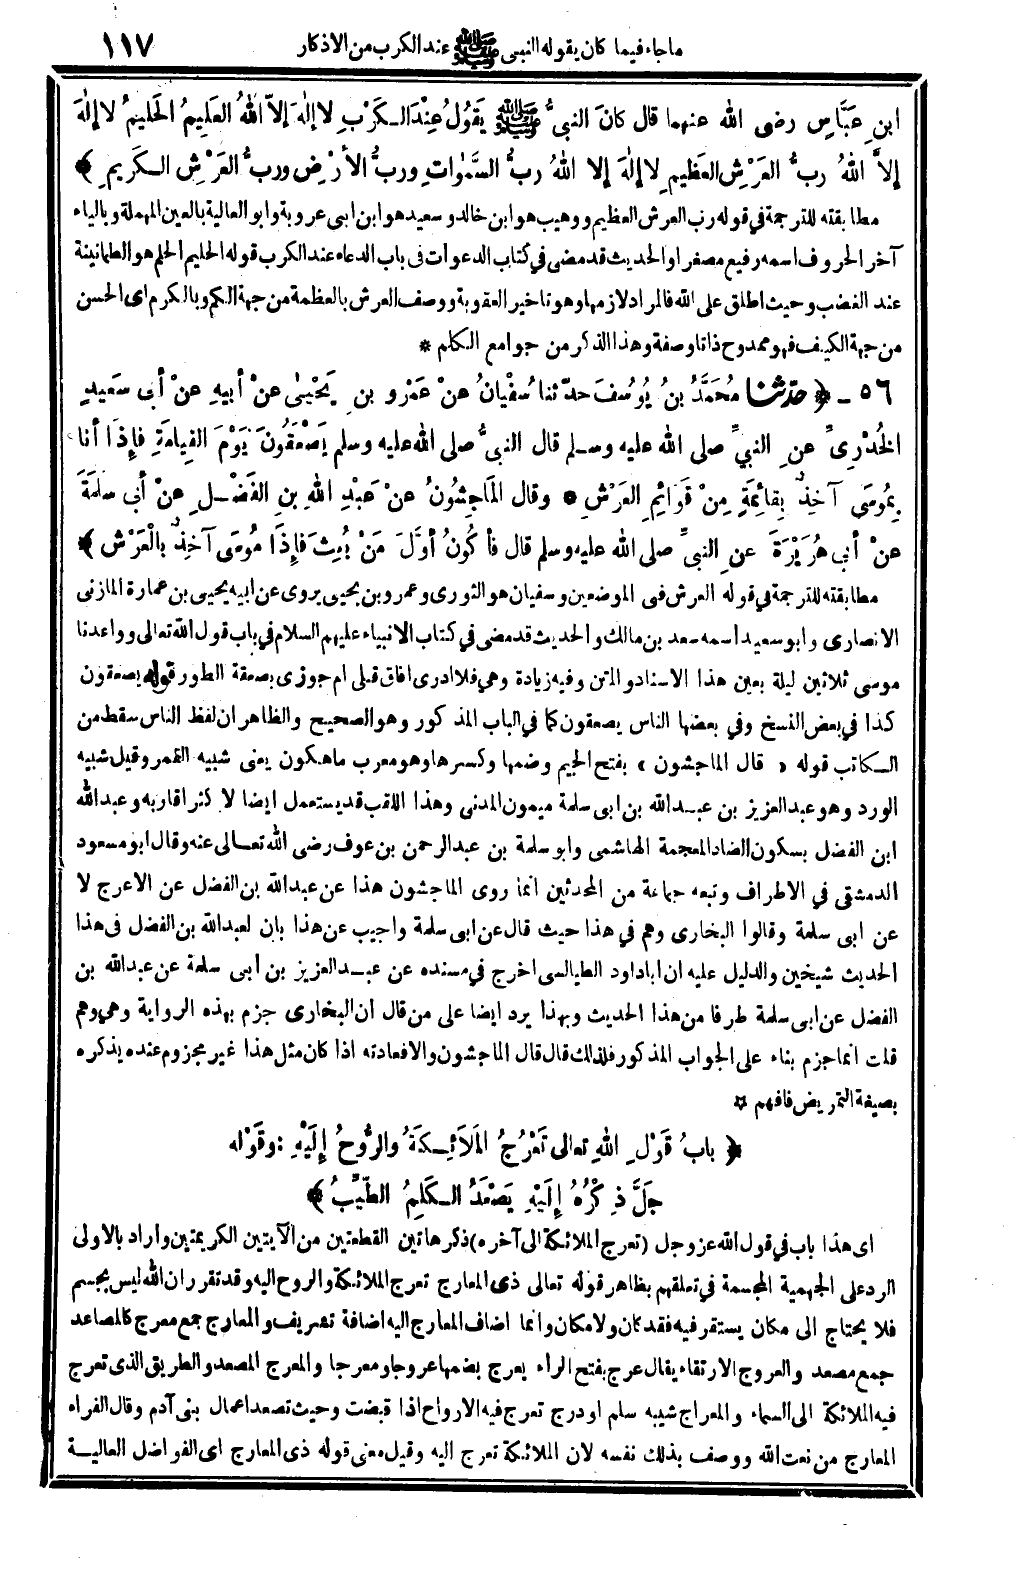 ماجاء فيما كان يقوله النبي ﷺ عند الكرب من الاذكار ١١٧
ابنِ عَبَّاسٍ رضى الله عنهما قال كانَ النبيُّ ﷺ يَقُولُ عِنْدَ الـكَرْبِ لا إلٰهَ إلاّ اللهُ العَلِيمُ الحَلِيمُ لا إلٰهَ
إلاَّ اللهُ ربُّ العَرْشِ العَظِيمِ لا إلٰهَ إلا اللهُ ربُّ السَّمٰواتِ وربُّ الأرْضِ وربُّ العَرْشِ الـكَرِيمِ ﴾
مطابقته للترجمة في قوله رب العرش العظيم ووهيب هو ابن خالد وسعيد هو ابن ابى عروبة وابو العالية بالعين المهملة وبالياء
آخر الحروف اسمه رفيع مصغرا والحديث قد مضى في كتاب الدعوات فى باب الدعاء عند الكرب قوله الحليم الحلم هو الطمانينة
عند الغضب وحيث اطلق على الله فالمراد لازمها وهو تاخير العقوبة ووصف العرش بالعظمة من جهة الكم وبالكرم اى الحسن
من جهة الكيف فهو ممدوح ذاتا وصفة وهذا الذكر من جوامع الكلم *
٥٦ ـ ﴿ حدّثنا مُحَمَّدُ بنُ يُوسُفَ حدّثنا سُفْيانُ عنْ عَمْرو بنِ يَحْيىٰ عنْ أبيهِ عنْ أبى سَعيدٍ
الخُدْرِىِّ عنِ النبيِّ صلى الله عليه وسـلم قال النبىُّ صلى الله عليه وسلم يَصْعَقُونَ يَوْمَ القِيامَةِ فإذَا أنا
بِمُوسَى آخِذٌ بِقائِمَةٍ مِنْ قَوَائِمِ العَرْشِ * وقال المَاجِشُونُ عنْ عَبْدِ اللهِ بنِ الفَضْـلِ عنْ أبى سلَمَةَ
عنْ أبى هُرَيْرَةَ عنِ النبيِّ صلى الله عليه وسلم قال فأكُونُ أوَّلَ مَنْ بُعِثَ فإذَا مُوسَى آخِذٌ بالْعَرْشِ ﴾
مطابقته للترجمة في قوله العرش فى الموضعين وسفيان هو الثورى وعمرو بن يحيى يروى عن ابيه يحيى بن عمارة المازنى
الانصارى وابو سعيد اسمه سعد بن مالك والحديث قد مضى في كتاب الانبياء عليهم السلام في باب قول الله تعالى وواعدنا
موسى ثلاثين ليلة بعين هذا الاسناد والمتن وفيه زيادة وهي فلا ادرى افاق قبلى ام جوزى بصعقة الطور قوله يصعقون
كذا في بعض النسخ وفي بعضها الناس يصعقون كما في الباب المذكور وهو الصحيح والظاهر ان لفظ الناس سقط من
الـكاتب قوله « قال الماجشون » بفتح الجيم وضمها وكسرها وهو معرب ماهكون يعنى شبيه القمر وقيل شبيه
الورد وهو عبد العزيز بن عبـد الله بن ابى سلمة ميمون المدنى وهذا اللقب قد يستعمل ايضا لاكثر اقاربه وعبد الله
ابن الفضل بسكون الضاد المعجمة الهاشمى وابو سلمة بن عبد الرحمن بن عوف رضى الله تعـالى عنه وقال ابو مسعود
الدمشقى في الاطراف وتبعه جماعة من المحدثين انما روى الماجشون هذا عن عبد الله بن الفضل عن الاعرج لا
عن ابى سلمة وقالوا البخارى وهم في هذا حيث قال عن ابى سلمة واجيب عن هذا بان لعبد الله بن الفضل فى هذا
الحديث شيخين والدليل عليه ان اباداود الطيالسى اخرج في مسنده عن عبـد العزيز بن أبى سلمة عن عبد الله بن
الفضل عن ابى سلمة طرفا من هذا الحديث وبهذا يرد ايضا على من قال ان البخارى جزم بهذه الرواية وهي وهم
قلت انما جزم بناء على الجواب المذكور فلذلك قال قال الماجشون والا فعادته اذا كان مثل هذا غير مجزوم عنده يذكره
بصيغة التمريض فافهم *
﴿ بابُ قَوْلِ اللهِ تعالى تَعْرُجُ المَلاَئِـكَةُ والرُّوحُ إلَيْهِ : وقَوْله
جَلَّ ذِكْرُهُ إلَيْهِ يَصْعَدُ الـكَلِمُ الطَّيِّبُ ﴾
اى هذا باب في قول الله عز وجل (تعرج الملائكة الى آخره) ذكر هاتين القطعتين من الآيتين الكريمتين واراد بالاولى
الرد على الجهمية المجسمة في تعلقهم بظاهر قوله تعالى ذى المعارج تعرج الملائكة والروح اليه وقد تقرر ان الله ليس بجسم
فلا يحتاج الى مكان يستقر فيه فقد كان ولا مكان وانما اضاف المعارج اليه اضافة تشريف والمعارج جمع معرج كالمصاعد
جمع مصعد والعروج الارتقاء يقال عرج بفتح الراء يعرج بضمها عروجا ومعرجا والمعرج المصعد والطريق الذى تعرج
فيه الملائكة الى السماء والمعراج شبيه سلم او درج تعرج فيه الارواح اذا قبضت وحيث تصعد اعمال بنى آدم وقال الفراء
المعارج من نعت الله ووصف بذلك نفسه لان الملائكة تعرج اليه وقيل معنى قوله ذى المعارج اى الفواضل العاليـة